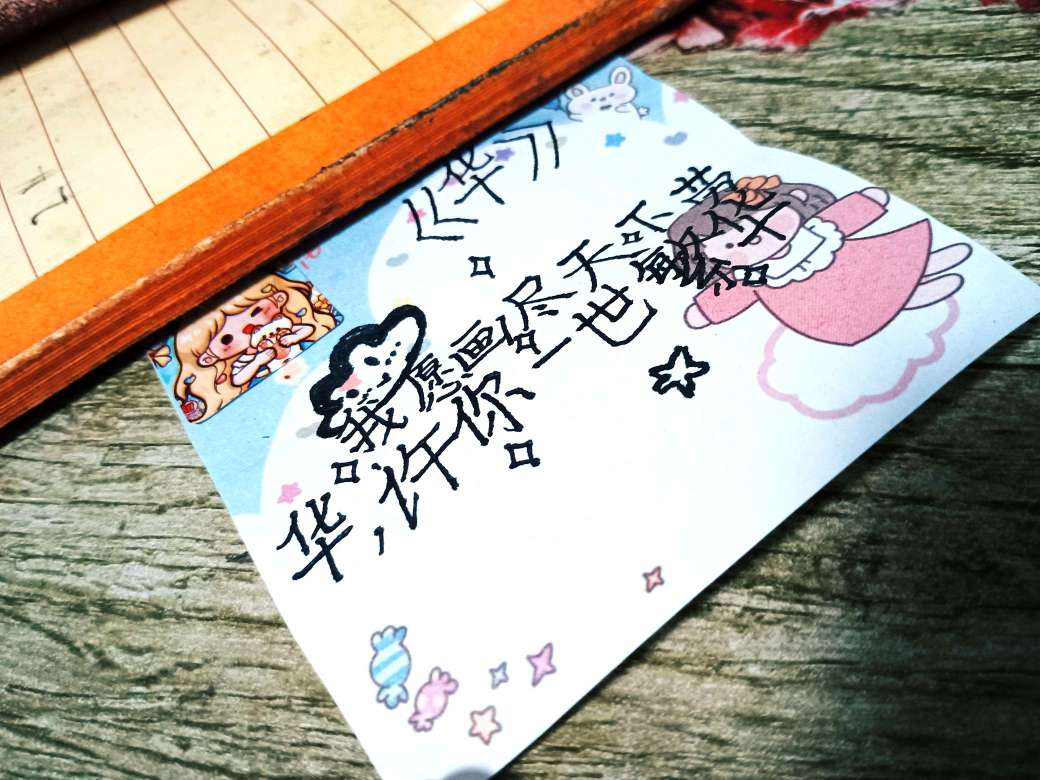 《华》
我愿画尽天下荣
华,许你一世繁华